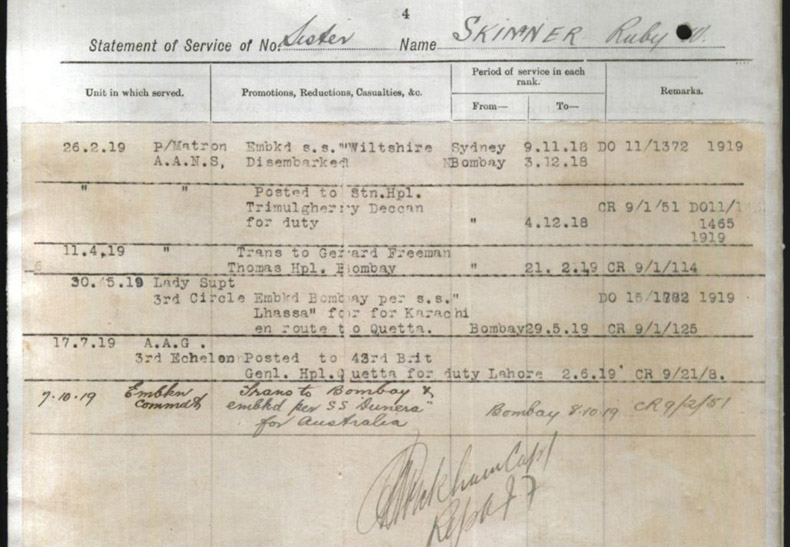 4
Statement of Service of No. Sister Name SKINNER Ruby W.
Unit in which served. Promotions, Reductions, Casualties, &c. Period of service in each rank. From— To— Remarks.
26.2.19 P/Matron Embkd s.s."Wiltshire Sydney 9.11.18 DO 11/1372 1919
A.A.N.S, Disembarked Bombay 3.12.18
" " Posted to Stn.Hpl.
Trimulgherry Deccan CR 9/1/51 DO11/1
for duty " 4.12.18 1465
1919
11.4.19 " Trans to Gerrard Freeman
Thomas Hpl. Bombay " 21. 2.19 CR 9/1/114
30.5.19 Lady Supt
3rd Circle Embkd Bombay per s.s." DO 15/1782 1919
Lhassa" for for Karachi
en route to Quetta. Bombay29.5.19 CR 9/1/125
17.7.19 A.A.G.
3rd Echelon Posted to 43rd Brit
Genl. Hpl.Quetta for duty Lahore 2.6.19 CR 9/21/8.
7.10.19 Embkn Trans to Bombay &
Commdt embkd per SS Dunera" Bombay 8.10.19 CR9/2/51
for Australia
Capt